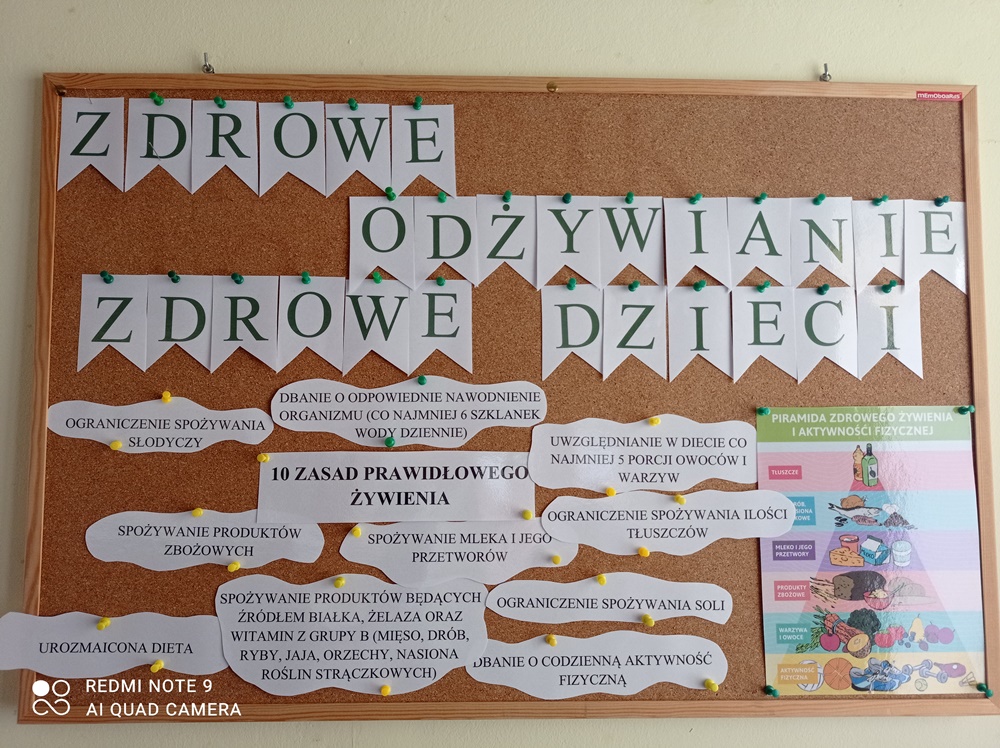 MEMOBOARDS
ZDROWE
ODŻYWIANIE
ZDROWE DZIECI
OGRANICZENIE SPOŻYWANIA
SŁODYCZY
DBANIE O ODPOWIEDNIE NAWODNIENIE
ORGANIZMU (CO NAJMNIEJ 6 SZKLANEK
WODY DZIENNIE)
UWZGLĘDNIANIE W DIECIE CO
NAJMNIEJ 5 PORCJI OWOCÓW I
WARZYW
10 ZASAD PRAWIDŁOWEGO
ŻYWIENIA
SPOŻYWANIE PRODUKTÓW
ZBOŻOWYCH
SPOŻYWANIE MLEKA I JEGO
PRZETWORÓW
OGRANICZENIE SPOŻYWANIA ILOŚCI
TŁUSZCZÓW
UROZMAICONA DIETA
SPOŻYWANIE PRODUKTÓW BĘDĄCYCH
ŹRÓDŁEM BIAŁKA, ŻELAZA ORAZ
WITAMIN Z GRUPY B (MIĘSO, DRÓB,
RYBY, JAJA, ORZECHY, NASIONA
ROŚLIN STRĄCZKOWYCH)
OGRANICZENIE SPOŻYWANIA SOLI
DBANIE O CODZIENNĄ AKTYWNOŚĆ
FIZYCZNĄ
PIRAMIDA ZDROWEGO ŻYWIENIA
I AKTYWNOŚCI FIZYCZNEJ
TŁUSZCZE
MLEKO I JEGO
PRZETWORY
PRODUKTY
ZBOŻOWE
WARZYWA
I OWOCE
AKTYWNOŚĆ
FIZYCZNA
REDMI NOTE 9
AI QUAD CAMERA